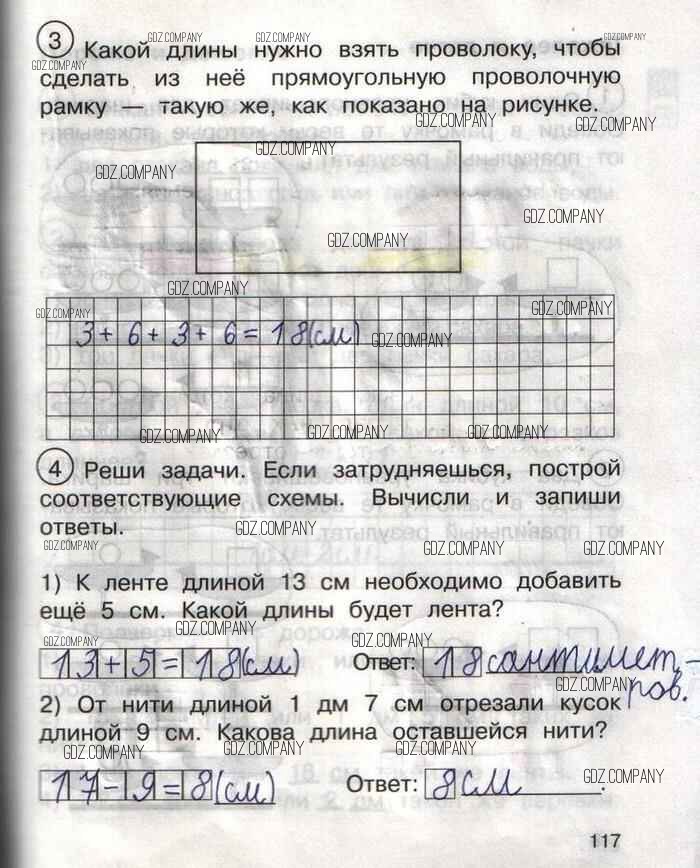 3 Какой длины нужно взять проволоку, чтобы
сделать из неё прямоугольную проволочную
рамку — такую же, как показано на рисунке.
GDZ.COMPANY
3+6+3+6=18(см)
4 Реши задачи. Если затрудняешься, построй
соответствующие схемы. Вычисли и запиши
ответы.
1) К ленте длиной 13 см необходимо добавить
ещё 5 см. Какой длины будет лента?
13+5=18(см) Ответ: 18 сантимет-
ров.
2) От нити длиной 1 дм 7 см отрезали кусок
длиной 9 см. Какова длина оставшейся нити?
17-9=8(см) Ответ: 8 см.
117